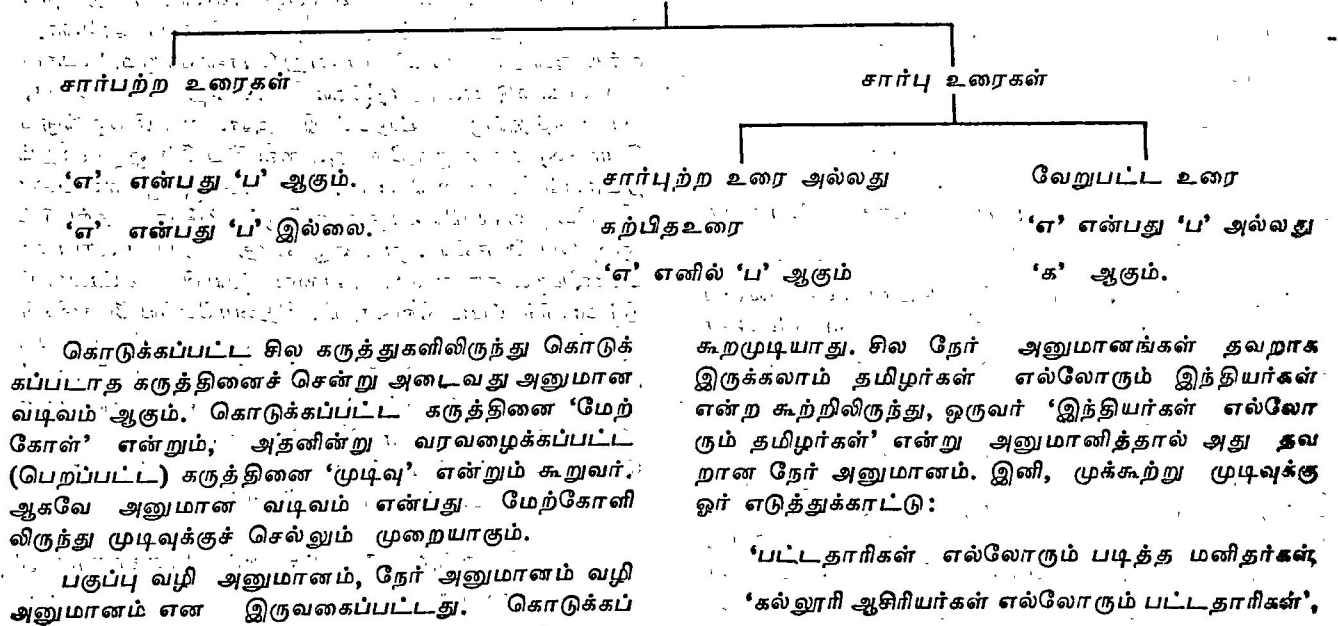 சார்பற்ற உரைகள்
சார்பு உரைகள்
‘எ’ என்பது ‘ப’ ஆகும்.
‘எ’ என்பது ‘ப’ இல்லை.
சார்புற்ற உரை அல்லது
கற்பிதஉரை
‘எ’ எனில் ‘ப’ ஆகும்
வேறுபட்ட உரை
‘எ’ என்பது ‘ப’ அல்லது
‘க’ ஆகும்.
கொடுக்கப்பட்ட சில கருத்துகளிலிருந்து கொடுக்
கப்படாத கருத்தினைச் சென்று அடைவது அனுமான
வடிவம் ஆகும். கொடுக்கப்பட்ட கருத்தினை ‘மேற்
கோள்’ என்றும், அதனின்று வரவழைக்கப்பட்ட
(பெறப்பட்ட) கருத்தினை ‘முடிவு’ என்றும் கூறுவர்.
ஆகவே அனுமான வடிவம் என்பது மேற்கோளி
லிருந்து முடிவுக்குச் செல்லும் முறையாகும்.
பகுப்பு வழி அனுமானம், நேர் அனுமானம் வழி
அனுமானம் என இருவகைப்பட்டது. கொடுக்கப்
கூறமுடியாது. சில நேர் அனுமானங்கள் தவறாக
இருக்கலாம் தமிழர்கள் எல்லோரும் இந்தியர்கள்
என்ற கூற்றிலிருந்து, ஒருவர் ‘இந்தியர்கள் எல்லோ
ரும் தமிழர்கள்’ என்று அனுமானித்தால் அது தவ
றான நேர் அனுமானம். இனி, முக்கூற்று முடிவுக்கு
ஓர் எடுத்துக்காட்டு:
‘பட்டதாரிகள் எல்லோரும் படித்த மனிதர்கள்,
‘கல்லூரி ஆசிரியர்கள் எல்லோரும் பட்டதாரிகள்’,